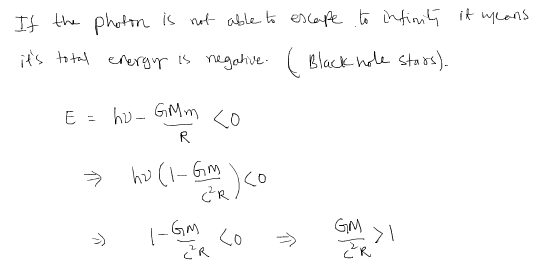 If the photon is not able to escape to infinity it means
it's total energy is negative. (Black hole stars).
E = hν - GMm/R < 0
⇒ hν(1 - GM/c²R) < 0
⇒ 1 - GM/c²R < 0 ⇒ GM/c²R > 1